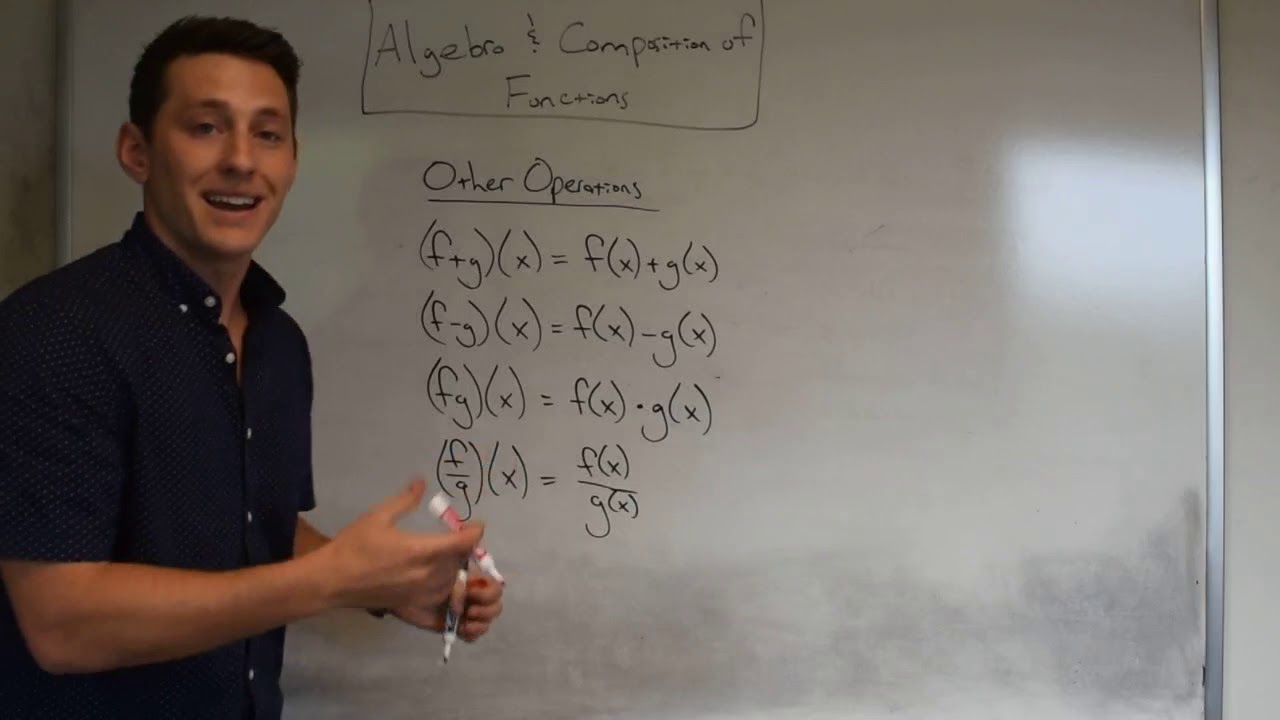 Algebra & Composition of
Functions
Other Operations
(f+g)(x) = f(x)+g(x)
(f-g)(x) = f(x)-g(x)
(fg)(x) = f(x)·g(x)
(f/g)(x) = f(x)/g(x)